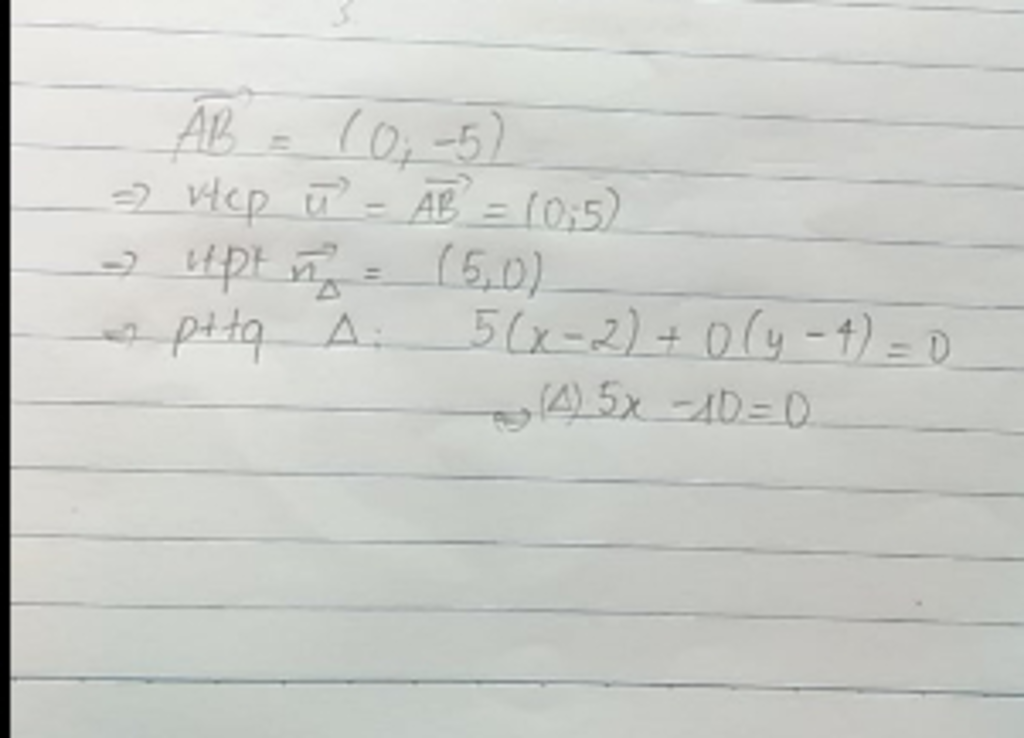 $\overrightarrow{AB} = (0; -5)$
⇒ vtcp $\overrightarrow{u} = \overrightarrow{AB} = (0;5)$
→ vtpt $\overrightarrow{n}_{\Delta} = (5,0)$
⇒ pttq Δ: 5(x-2) + 0(y-4) = 0
⇔ (Δ) 5x - 10 = 0